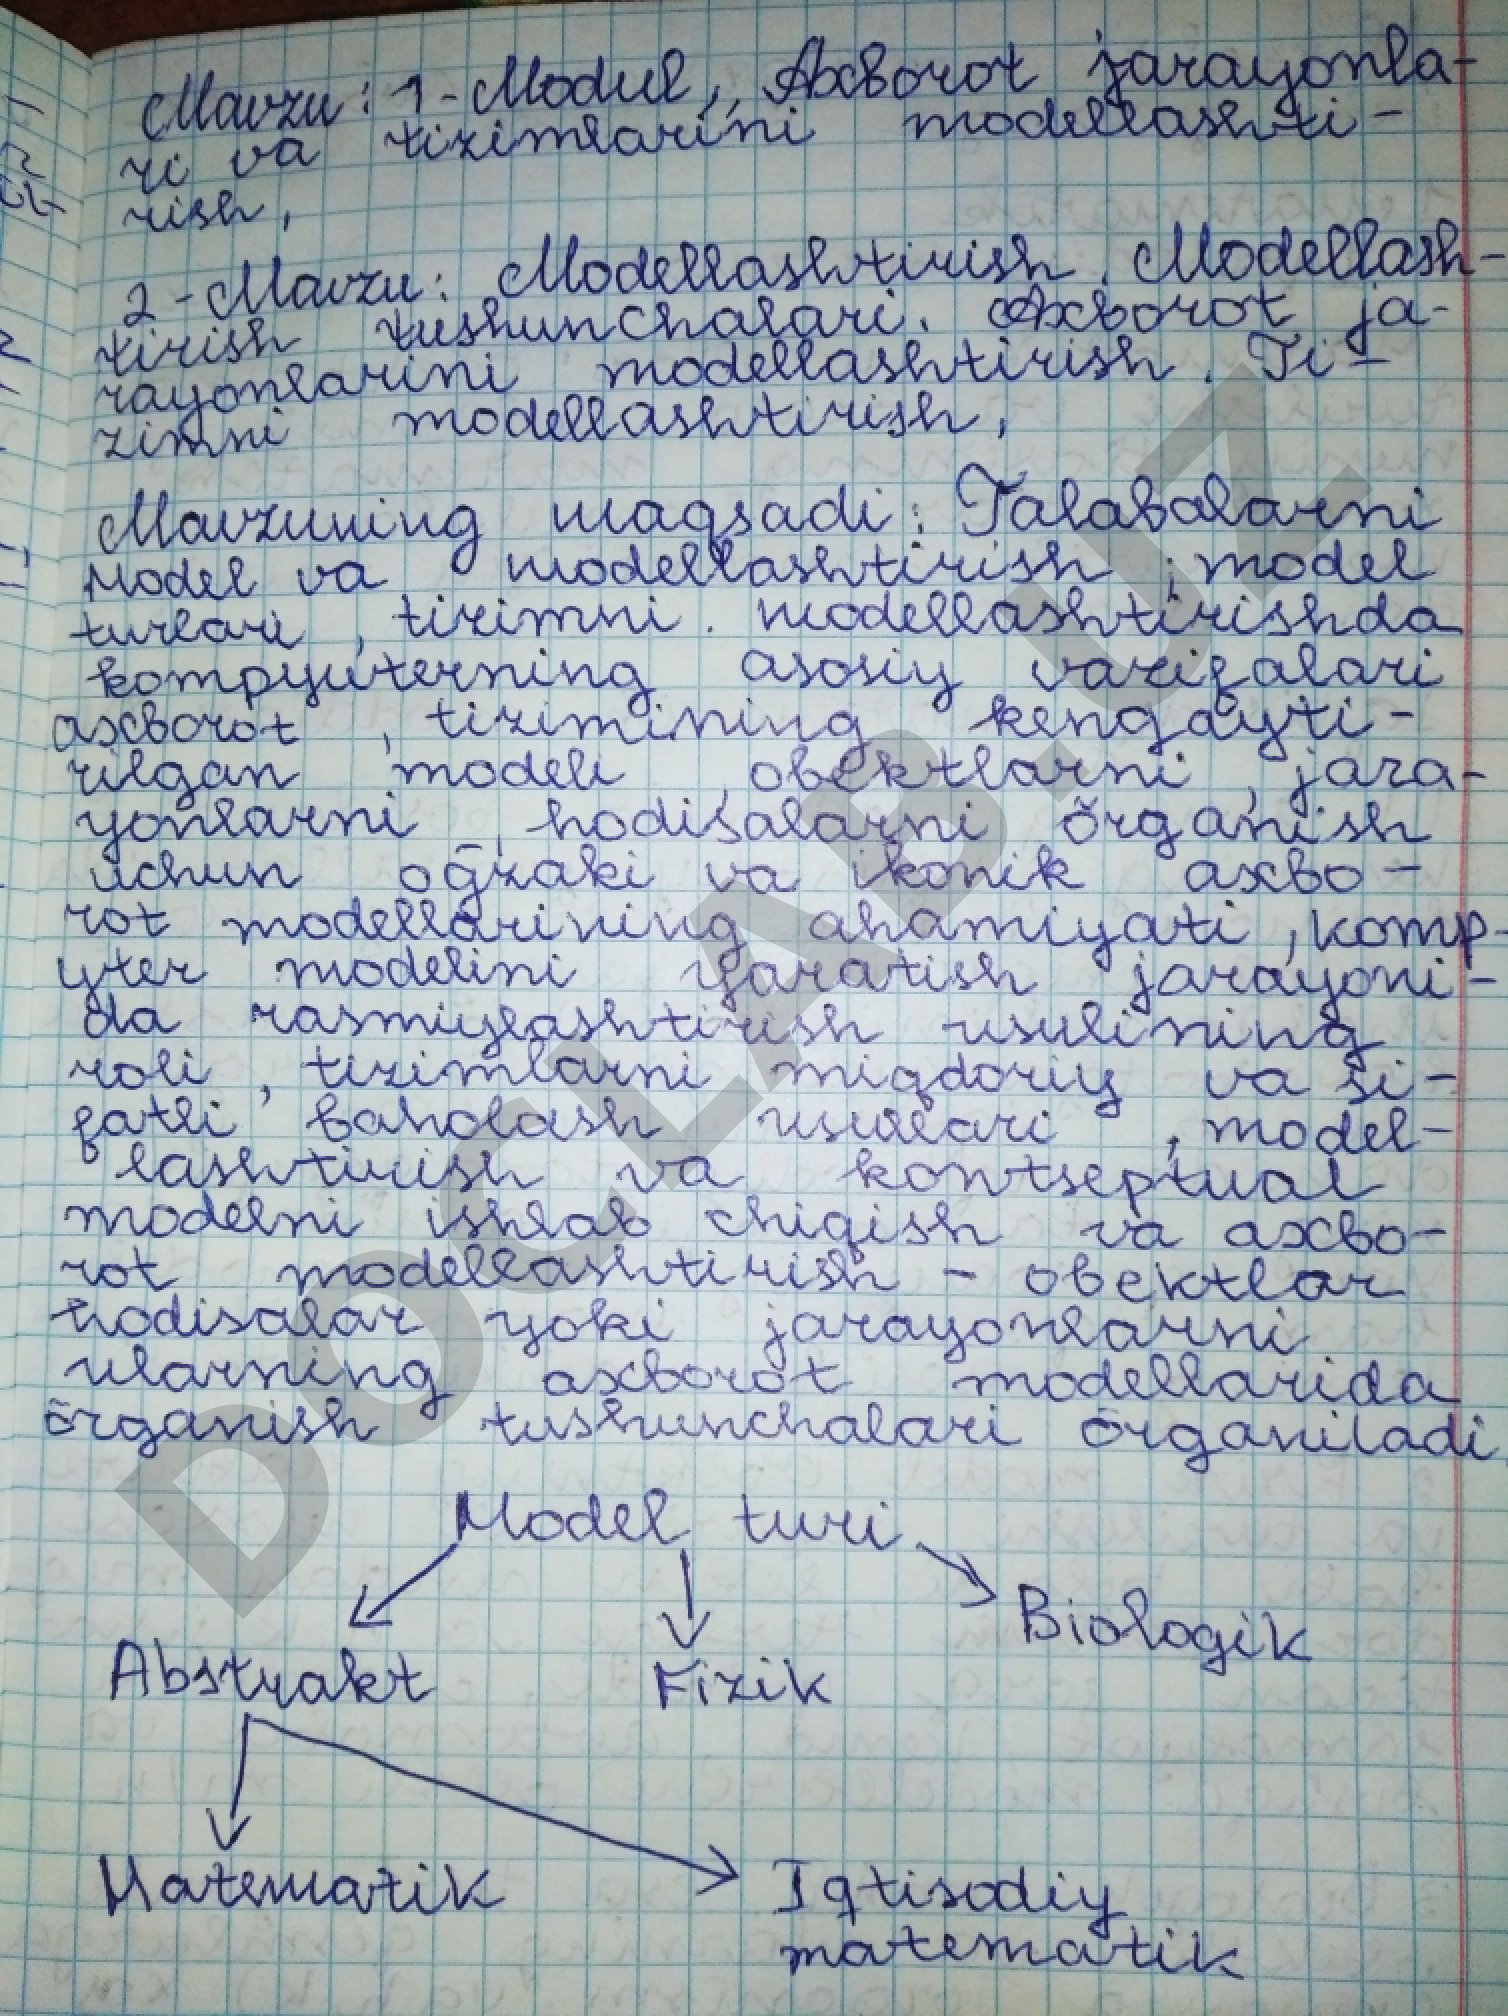 Mavzu: 1-Modul, Axborot jarayonla-
ri va tizimlarini modellashti-
rish.
2-Mavzu: Modellashtirish. Modellash-
tirish tushunchalari. Axborot ja-
rayonlarini modellashtirish. Ti-
zimni modellashtirish.
Mavzuning maqsadi: Talabalarni
model va modellashtirish, model
turlari, tizimni modellashtirishda
kompyuterning asosiy vazifalari
axborot, tizimining kengayti-
rilgan modeli, obektlarni, jara-
yonlarni, hodisalarni ŏrganish
uchun oğzaki va ikonik axbo-
rot modellarining ahamiyati, komp-
yter modelini yaratish jarayoni-
da rasmiylashtirish usulining
roli, tizimlarni miqdoriy va si-
fatli baholash usullari, model-
lashtirish va kontseptual
modelni ishlab chiqish va axbo-
rot modellashtirish - obektlar
hodisalar yoki jarayonlarni
ularning axborot modellarida
ŏrganish tushunchalari ŏrganiladi
Model turi
Biologik
Abstrakt Fizik
Matematik Iqtisodiy
matematik
DOCLAB.UZ